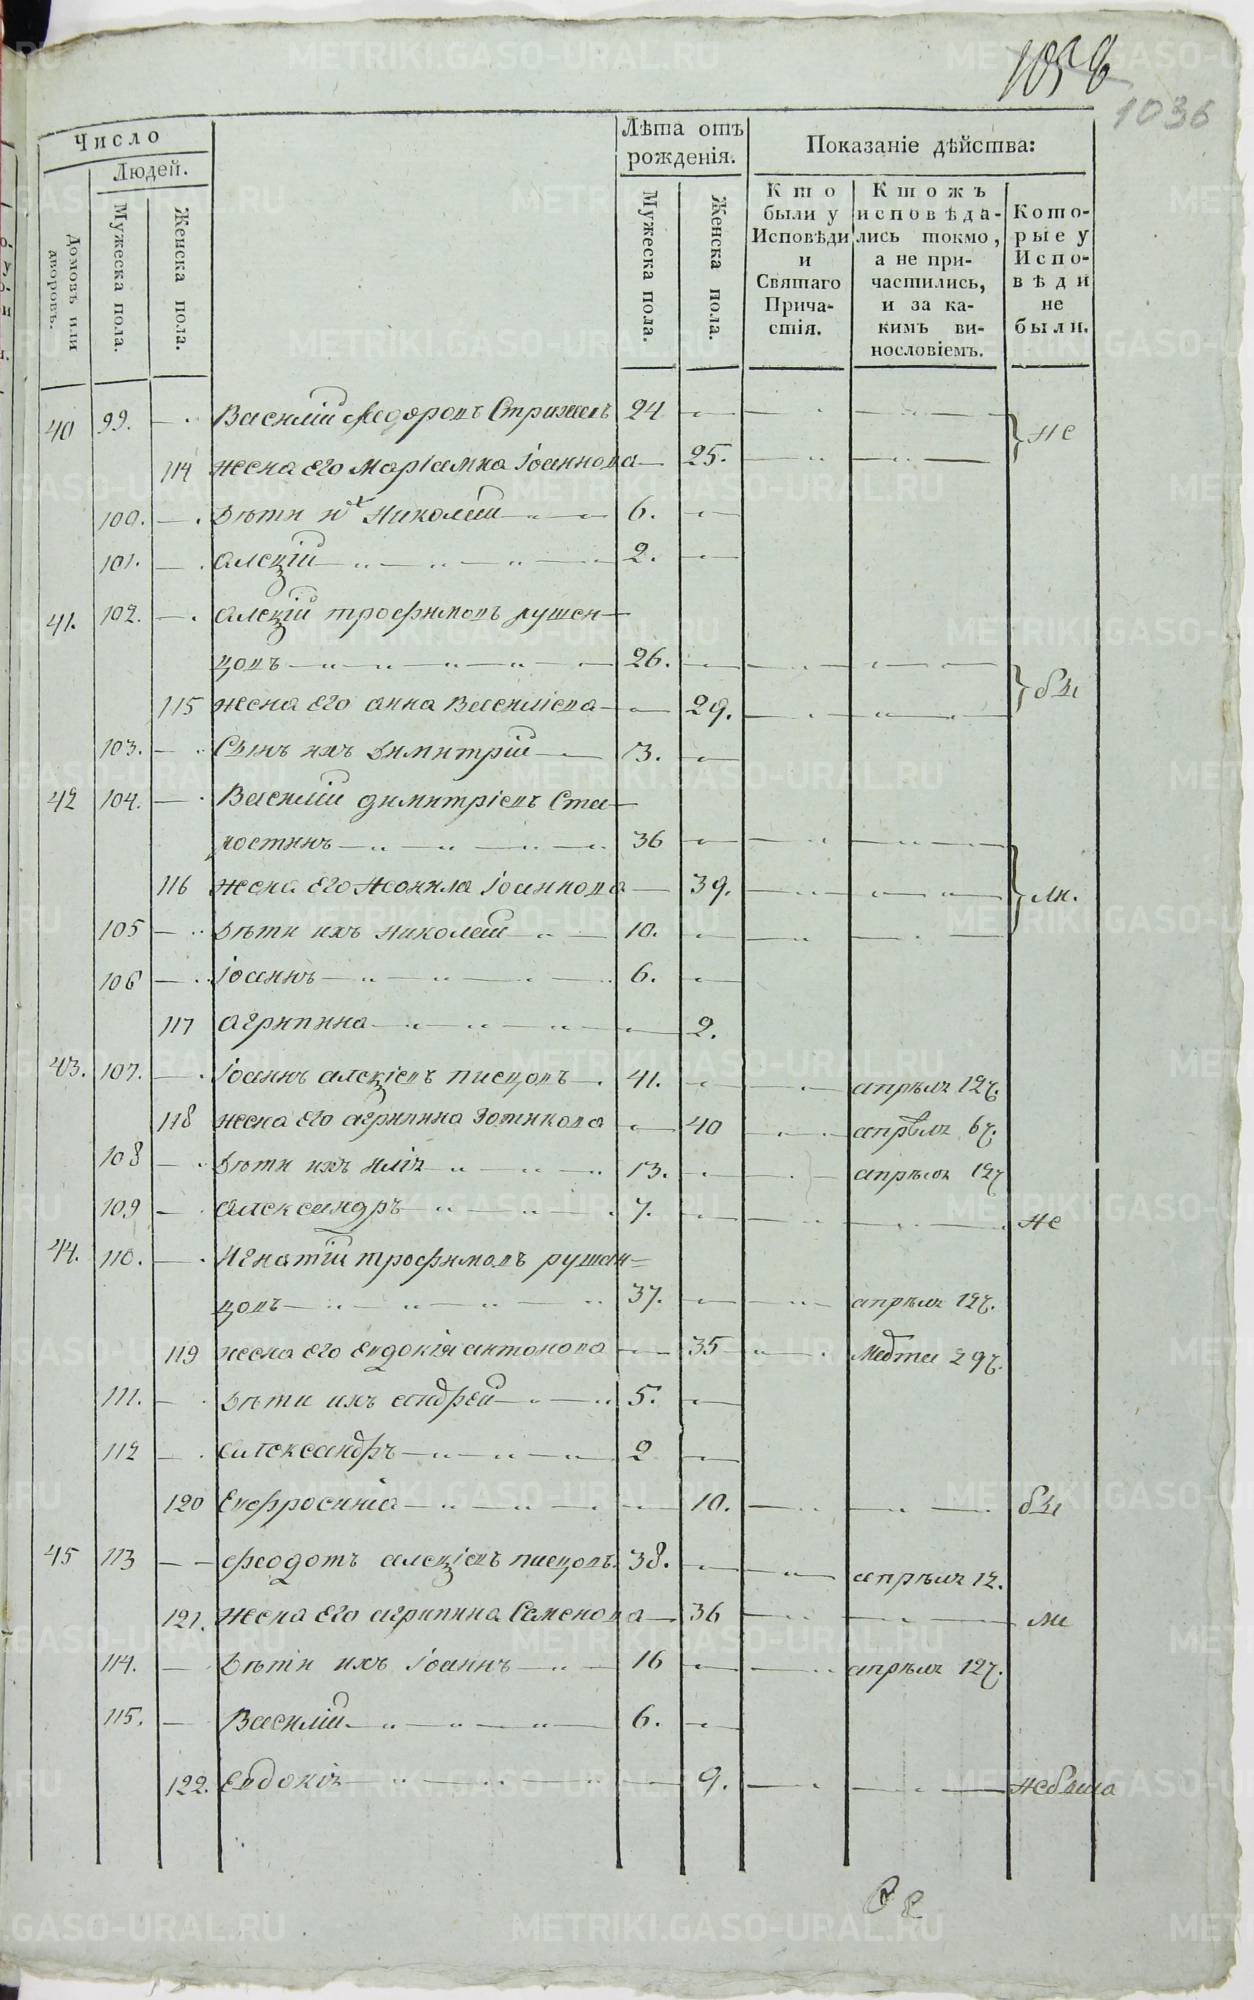 1036
1036
Число
Людей.
Домовъ или дворовъ.
Мужеска пола.
Женска пола.
Лѣта отъ рожденія.
Мужеска пола.
Женска пола.
Показаніе дѣйства:
Кто были у Исповѣди и Святаго Прича-стія.
Ктожъ исповѣда-лись токмо, а не при-частились, и за ка-кимъ ви-нословіемъ.
Кото-рые у Испо-вѣди не были.
40 99. Василій Ѳедоровъ 24 не
114 жена его Маріамна Іоаннова 25.
100. Дѣти ихъ Николай 6.
101. Алексій 2.
41. 102. Алексій Трофимовъ Рушен-
цовъ 26. бы
115 жена его Анна Василіева 29.
103. Сынъ ихъ Димитрій 3.
42 104. Василій Димитріевъ Ста-
ростинъ 36
116 жена его Неонила Іоаннова 39. ли.
105 Дѣти ихъ Николай 10.
106 Іоаннъ 6.
117 Агрипина 2.
43. 107. Іоаннъ Алексіевъ Писцовъ 41. апрѣля 12
118 жена его Агрипина Зотикова 40 апрѣля 6
108 Дѣти ихъ Илія 13. апрѣля 12
109 Александръ 7. не
44. 110. Игнатій Трофимовъ Рушен-
цовъ 37. апрѣля 12
119 жена его Евдокія Антонова 35 Марта 29
111. Дѣти ихъ Андрей 5.
112 Александръ 2
120 Евфросинія 10. бы
45 113 Ѳеодотъ Алексіевъ Писцовъ 38. апрѣля 12.
121. жена его Агрипина Семенова 36 ли
114. Дѣти ихъ Іоаннъ 16 апрѣля 12
115. Василій 6.
122. Евдокія 9. небыла
METRIKI.GASO-URAL.RU